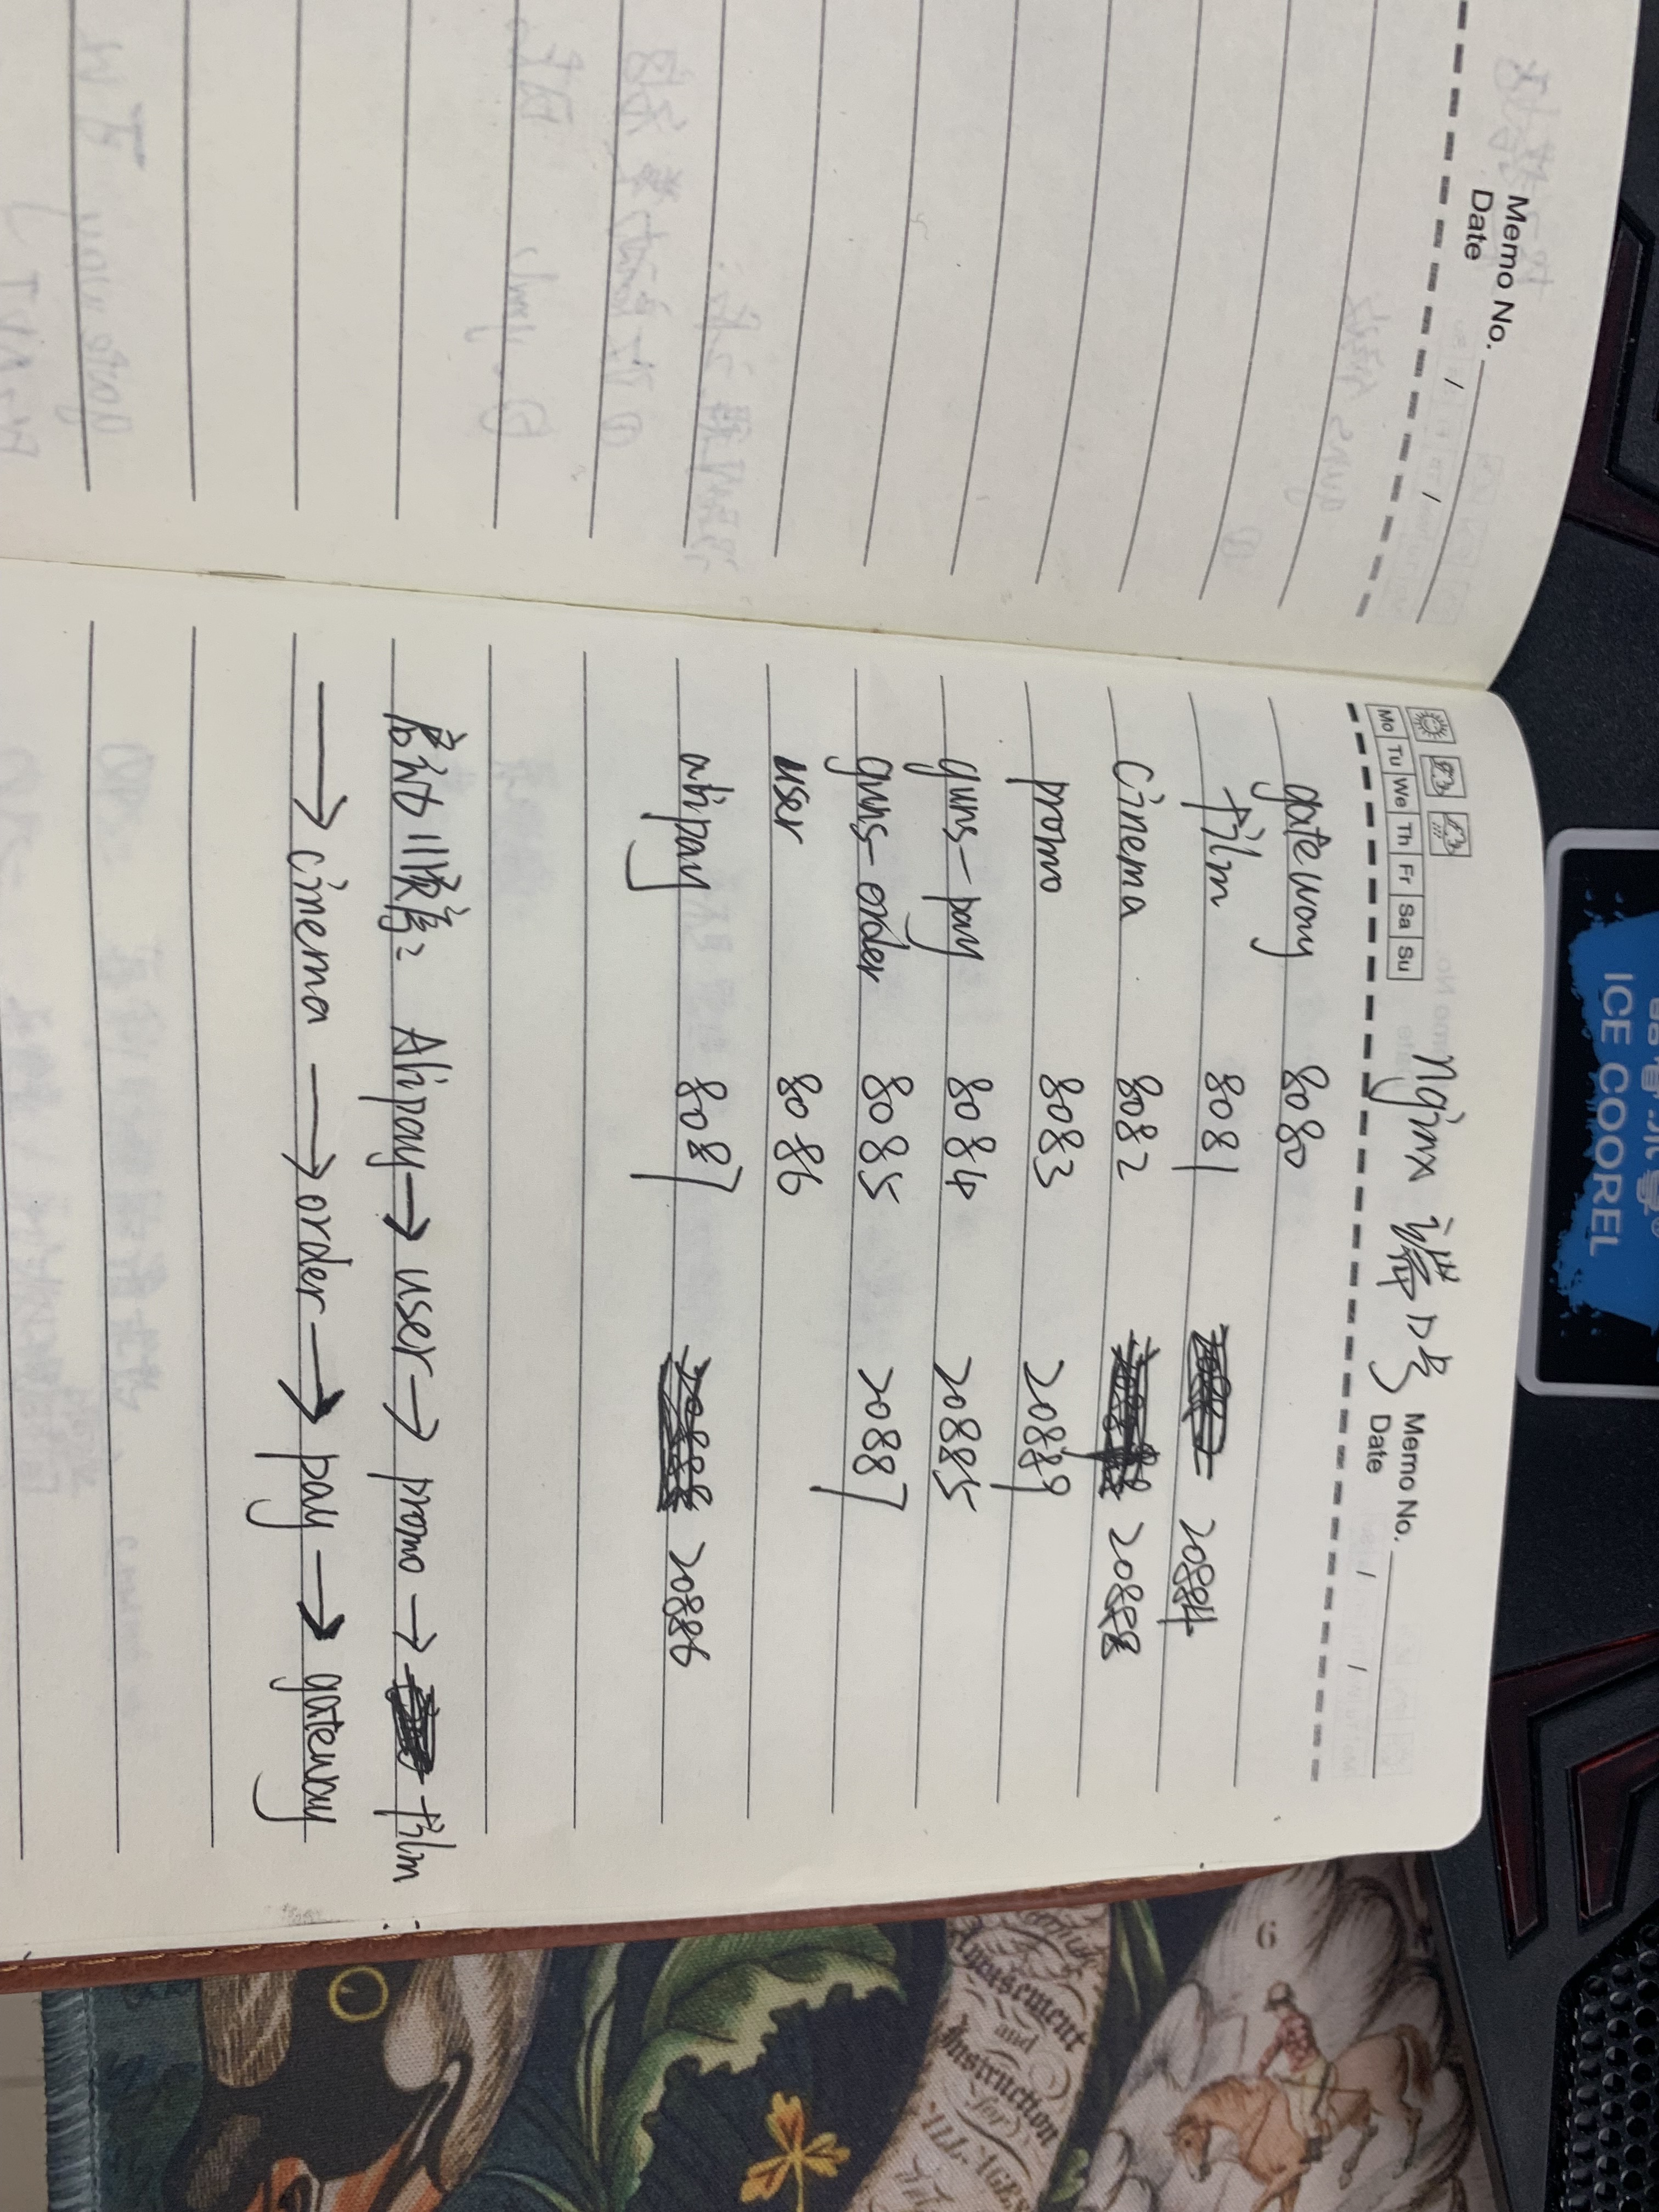 ICE COOREL
Memo No.
Date / /
nginx 端口号
Mo Tu We Th Fr Sa Su
Memo No.
Date / /
gateway 8080
film 8081 20884
cinema 8082 20888
promo 8083 20889
guns-pay 8084 20885
guns-order 8085 20887
user 8086
alipay 8087 20886
启动顺序: Alipay → user → promo → film
→ cinema → order → pay → gateway
Amusement
and
Instruction
for
ALL AGES